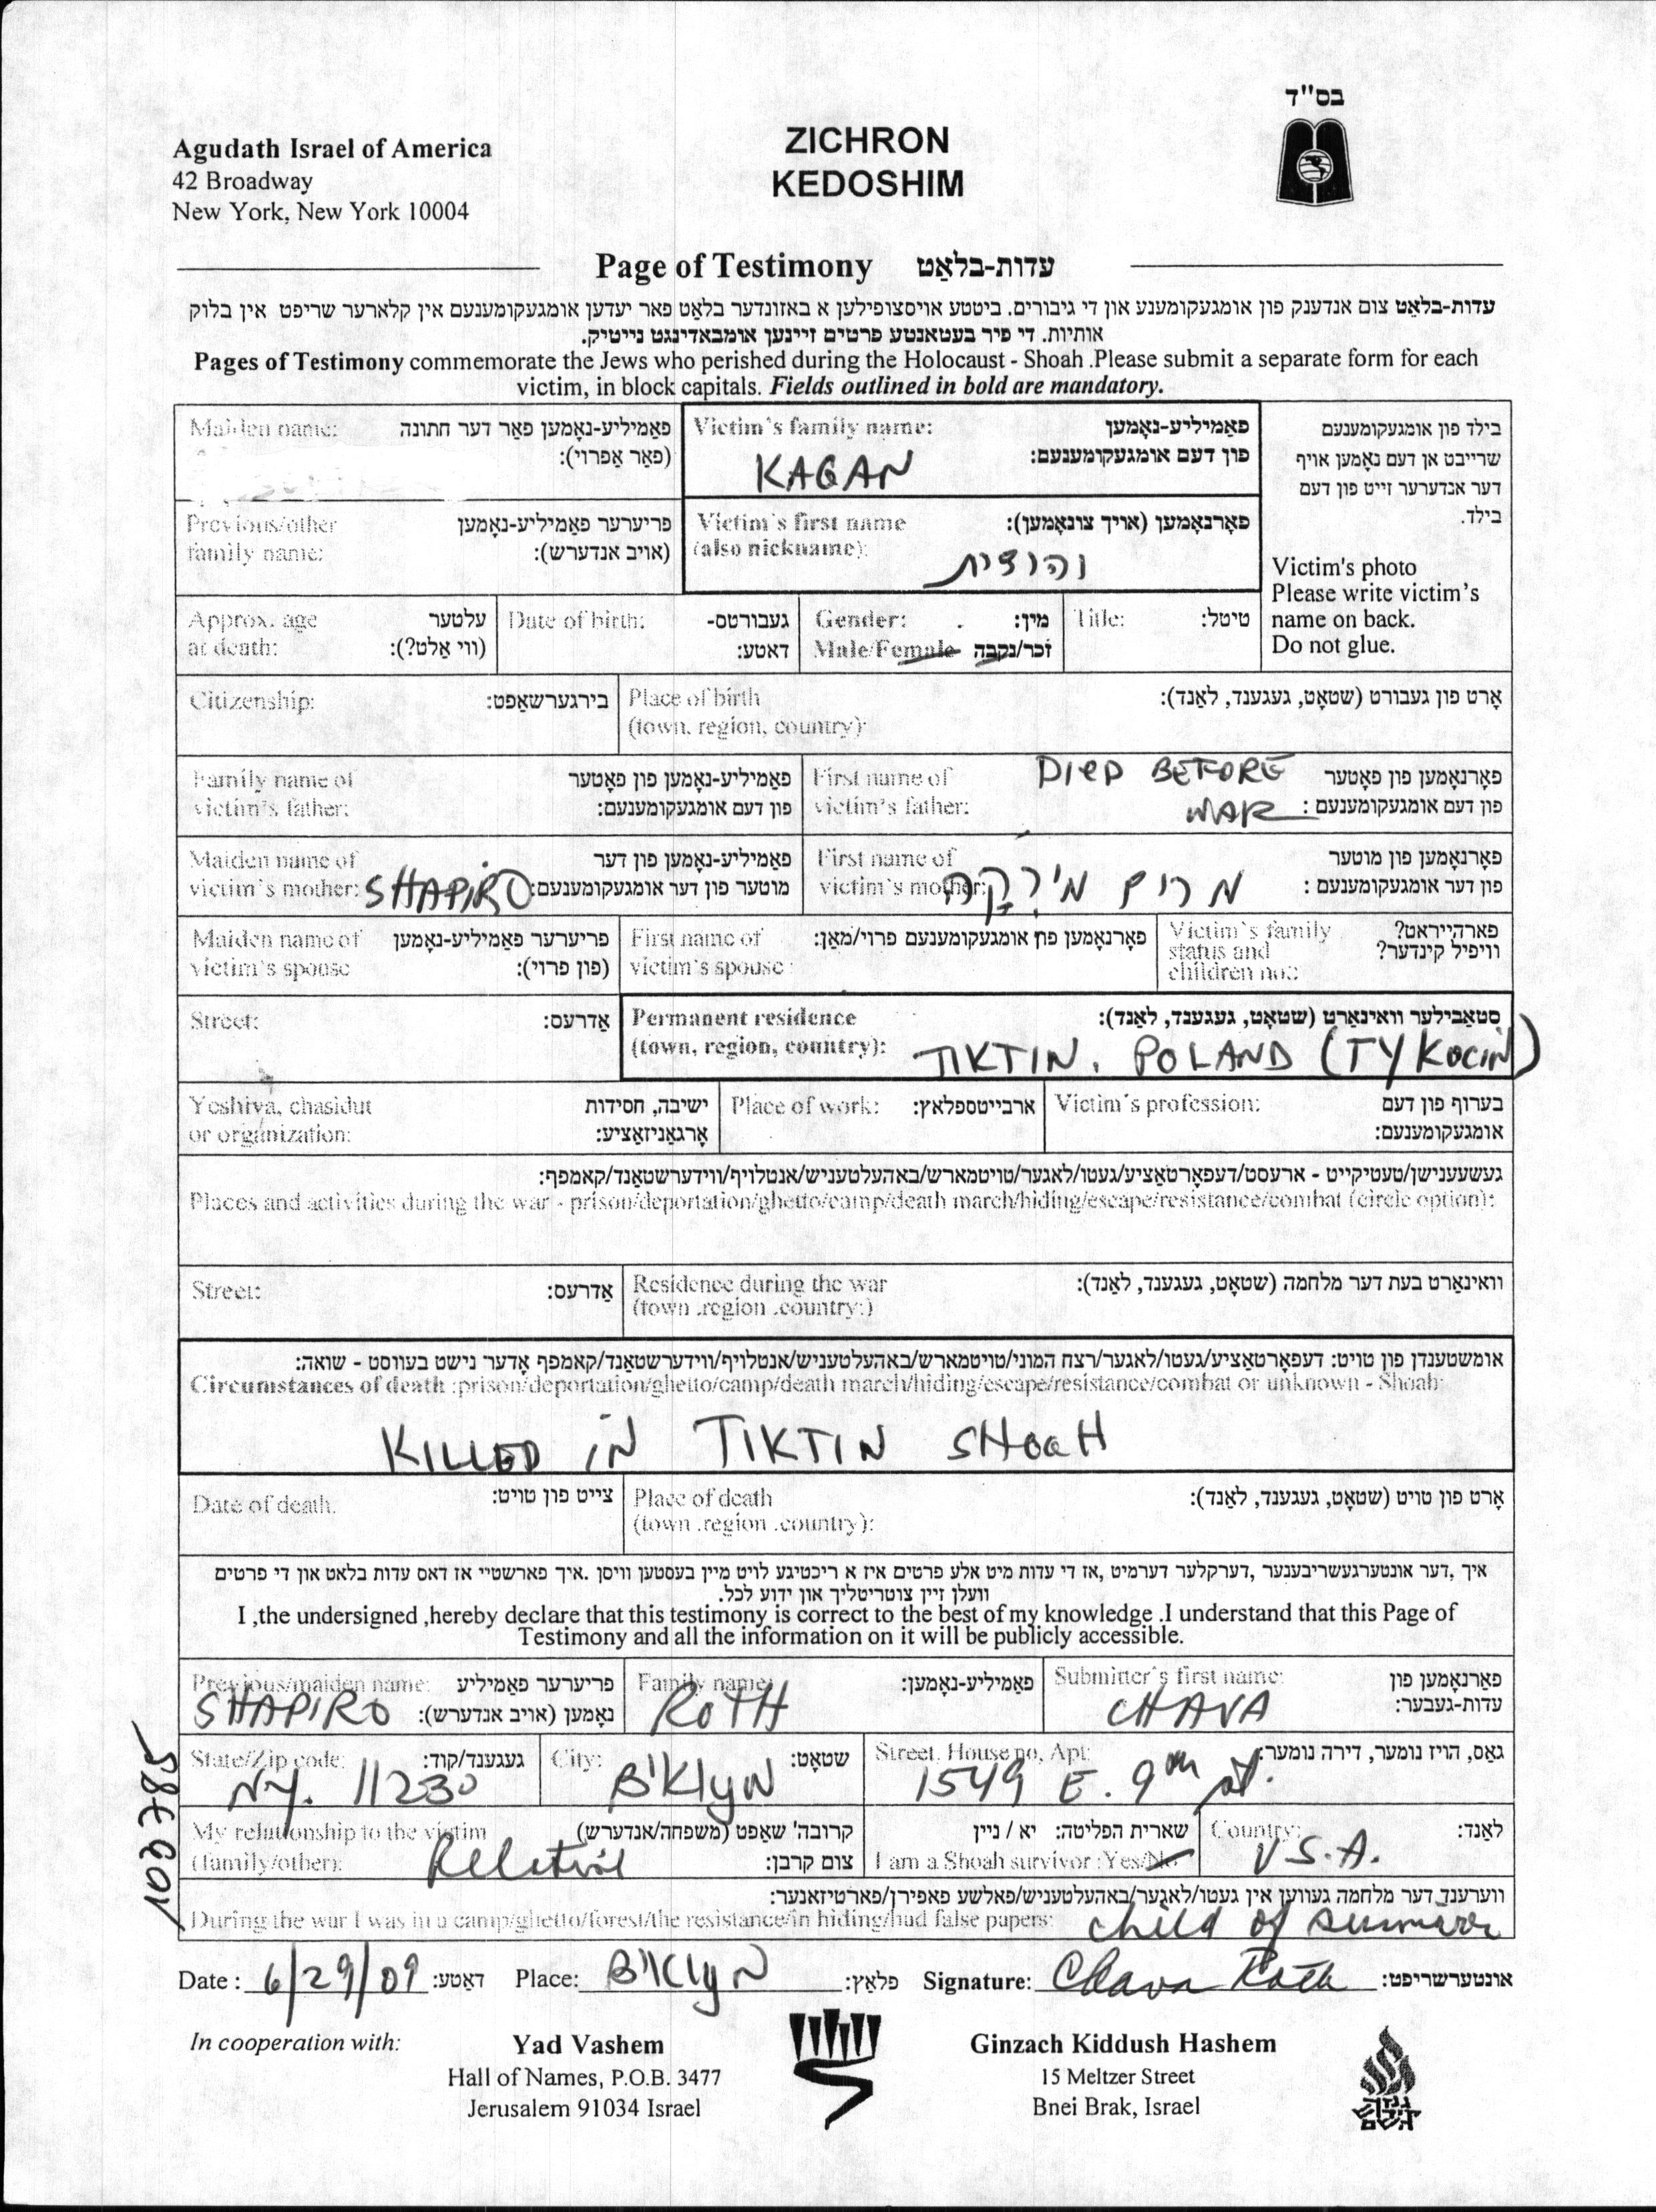 בס"ד
Agudath Israel of America
42 Broadway
New York, New York 10004
ZICHRON
KEDOSHIM
Page of Testimony עדות-בלאַט
עדות-בלאַט צום אנדענק פון אומגעקומענע און די גיבורים. ביטטע אויסצופילען א באזונדער בלאַט פאר יעדען אומגעקומענעם אין קלארער שריפט אין בלוק
אותיות. די פיר בעטאנטע פרטים זיינען אומבאדינגט נייטיק.
Pages of Testimony commemorate the Jews who perished during the Holocaust - Shoah .Please submit a separate form for each
victim, in block capitals. Fields outlined in bold are mandatory.
Maiden name: פאַמיליע-נאָמען פאַר דער חתונה
(פאַר אַפרוי):
Victim's family name: פאַמיליע-נאָמען
פון דעם אומגעקומענעם:
KAGAN
בילד פון אומגעקומענעם
שרייבט אן דעם נאָמען אויף
דער אנדערער זייט פון דעם
בילד.
Victim's photo
Please write victim's
name on back.
Do not glue.
Previous/other פריערער פאַמיליע-נאָמען
family name: (אויב אנדערש):
Victim's first name פאָרנאָמען (אויך צונאָמען):
(also nickname):
יהודית
Approx. age עלטער
at death: (ווי אַלט?):
Date of birth: געבורטס-
דאטע:
Gender: מין:
Male/Female זכר/נקבה
Title: טיטל:
Citizenship: בירגערשאַפט:
Place of birth אָרט פון געבורט (שטאָט, געגענד, לאַנד):
(town, region, country):
Family name of פאַמיליע-נאָמען פון פאָטער
victim's father: פון דעם אומגעקומענעם:
First name of פאָרנאָמען פון פאָטער
victim's father: פון דעם אומגעקומענעם:
DIED BEFORE
WAR
Maiden name of פאַמיליע-נאָמען פון דער
victim's mother: SHAPIRO מוטער פון דער אומגעקומענעם:
First name of פאָרנאָמען פון מוטער
victim's mother: פון דער אומגעקומענעם :
מרים
Maiden name of פריערער פאַמיליע-נאָמען
victim's spouse (פון פרוי):
First name of פאָרנאָמען פון אומגעקומענעם פרוי/מאַן:
victim's spouse :
Victim's family פארהייראט?
status and וויפיל קינדער?
children no.:
Street: אַדרעס:
Permanent residence סטאַבילער וואינאַרט (שטאָט, געגענד, לאַנד):
(town, region, country): TIKTIN. POLAND (TYKOCIN)
Yeshiva, chasidut ישיבה, חסידות
or organization: אָרגאַניזאַציע:
Place of work: ארבייטספלאץ:
Victim's profession: בערוף פון דעם
אומגעקומענעם:
געשעענישן/טעטיקייט - ארעסט/דעפאָרטאַציע/געטו/לאגער/טויטמארש/באהעלטעניש/אנטלויף/ווידערשטאַנד/קאמפף:
Places and activities during the war - prison/deportation/ghetto/camp/death march/hiding/escape/resistance/combat (circle option):
Street: אַדרעס:
Residence during the war וואינאַרט בעת דער מלחמה (שטאָט, געגענד, לאַנד):
(town .region .country:)
אומשטענדן פון טויט: דעפאָרטאַציע/געטו/לאגער/רצח המוני/טויטמארש/באהעלטעניש/אנטלויף/ווידערשטאַנד/קאמפף אָדער נישט בעוווסט - שואה:
Circumstances of death :prison/deportation/ghetto/camp/death march/hiding/escape/resistance/combat or unknown - Shoah:
KILLED IN TIKTIN SHOAH
Date of death. צייט פון טויט:
Place of death אָרט פון טויט (שטאָט, געגענד, לאַנד):
(town .region .country):
איך ,דער אונטערגעשריבענער ,דערקלער דערמיט ,אז די עדות מיט אלע פרטים איז א ריכטיגע לויט מיין בעסטען וויסן .איך פארשטיי אז דאס עדות בלאט און די פרטים
וועלן זיין צוטריטליך און ידוע לכל.
I ,the undersigned ,hereby declare that this testimony is correct to the best of my knowledge .I understand that this Page of
Testimony and all the information on it will be publicly accessible.
Previous/maiden name: פריערער פאַמיליע
SHAPIRO נאָמען (אויב אנדערש):
Family name: פאַמיליע-נאָמען:
ROTH
Submitter's first name: פאָרנאָמען פון
עדות-געבער:
CHAVA
State/Zip code: געגענד/קוד:
NY. 11230
City: שטאָט:
B'KlyN
Street, House no, Apt: גאַס, הויז נומער, דירה נומער:
1549 E. 9th st.
My relationship to the victim קרובה' שאַפט (משפחה/אנדערש)
(family/other): Relative צום קרבן:
שארית הפליטה: יא / ניין
I am a Shoah survivor :Yes/No
Country: לאַנד:
U.S.A.
ווערענד דער מלחמה געווען אין געטו/לאַגער/באהעלטעניש/פאלשע פאפירן/פארטיזאנער:
During the war I was in a camp/ghetto/forest/the resistance/in hiding/had false papers: child of survivor
Date : 6/29/09 דאַטע: Place: B'KlyN פלאַץ: Signature: Chava Roth אונטערשריפט:
103785
In cooperation with:
Yad Vashem
Hall of Names, P.O.B. 3477
Jerusalem 91034 Israel
Ginzach Kiddush Hashem
15 Meltzer Street
Bnei Brak, Israel
גנזך
קידוש
השם